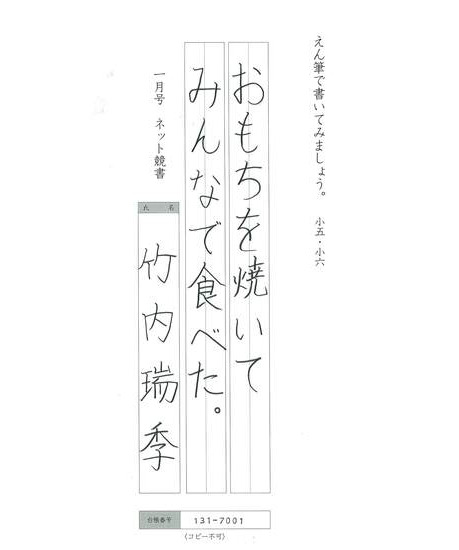 えん筆で書いてみましょう。 小五・小六
おもちを焼いて
みんなで食べた。
一月号 ネット競書
氏名
竹内瑞季
台帳番号 131-7001
(コピー不可)